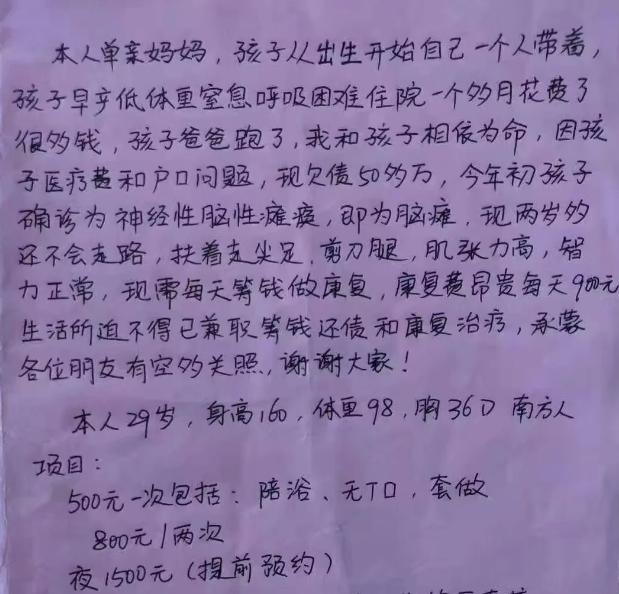 本人单亲妈妈，孩子从出生开始自己一个人带着，
孩子早产低体重窒息呼吸困难住院一个多月花费了
很多钱，孩子爸爸跑了，我和孩子相依为命，因孩
子医疗费和户口问题，现欠债50多万，今年初孩子
确诊为神经性脑性瘫痪，即为脑瘫，现两岁多
还不会走路，扶着走尖足，剪刀腿，肌张力高，智
力正常，现需每天筹钱做康复，康复费昂贵每天900元
生活所迫不得已兼职筹钱还债和康复治疗，承蒙
各位朋友有空多关照，谢谢大家！
本人29岁，身高160，体重98，胸36D 南方人
项目：
500元一次包括：陪浴、无TD，套做
800元/两次
夜1500元（提前预约）